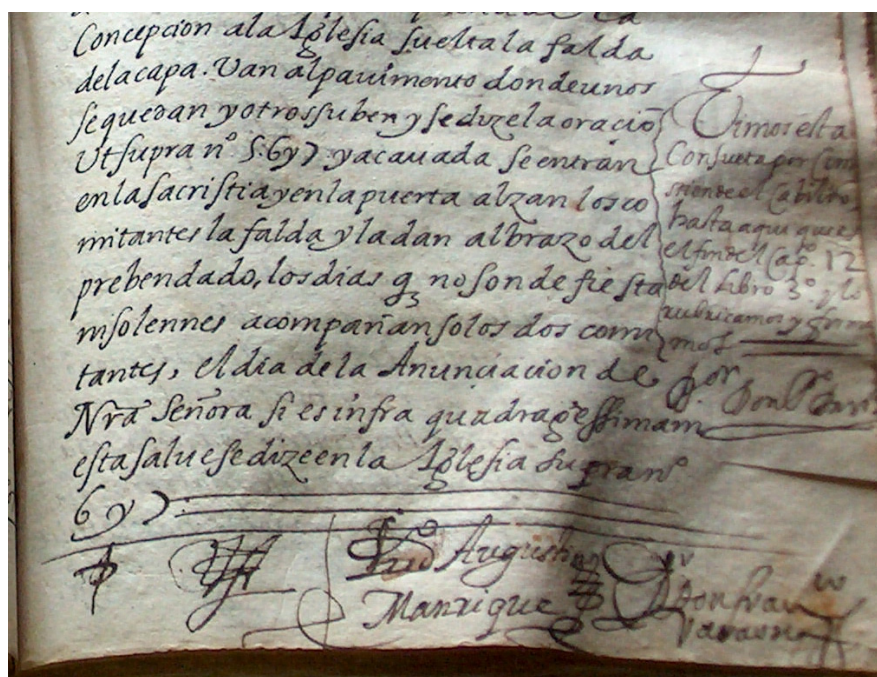 Concepcion ala Iglesia suelta la falda
delacapa. Van alpauimento dondeunos
sequedan yotros suben y sedize la oraciõ
Ut supra nº 5. 6 y 7 yacauada se entran
enlasacristia yenlapuerta alzan los co
mitantes la falda yladan albrazo del
prebendado, losdias q no son de fiesta
nisolennes acompañan solos dos comi
tantes, el dia de la Anunciacion de
Nrã Señora si es infra quadragessimam
esta salue sedize en la Iglesia supra nº
6 y 7
Vimos esta
Consueta por Comi
sion de el Cabildo,
hasta aqui que es
el fin del Capº. 12
del Libro 3º y lo
rubricamos y firma
mos
Augustin
Manrique
Don Fran^co